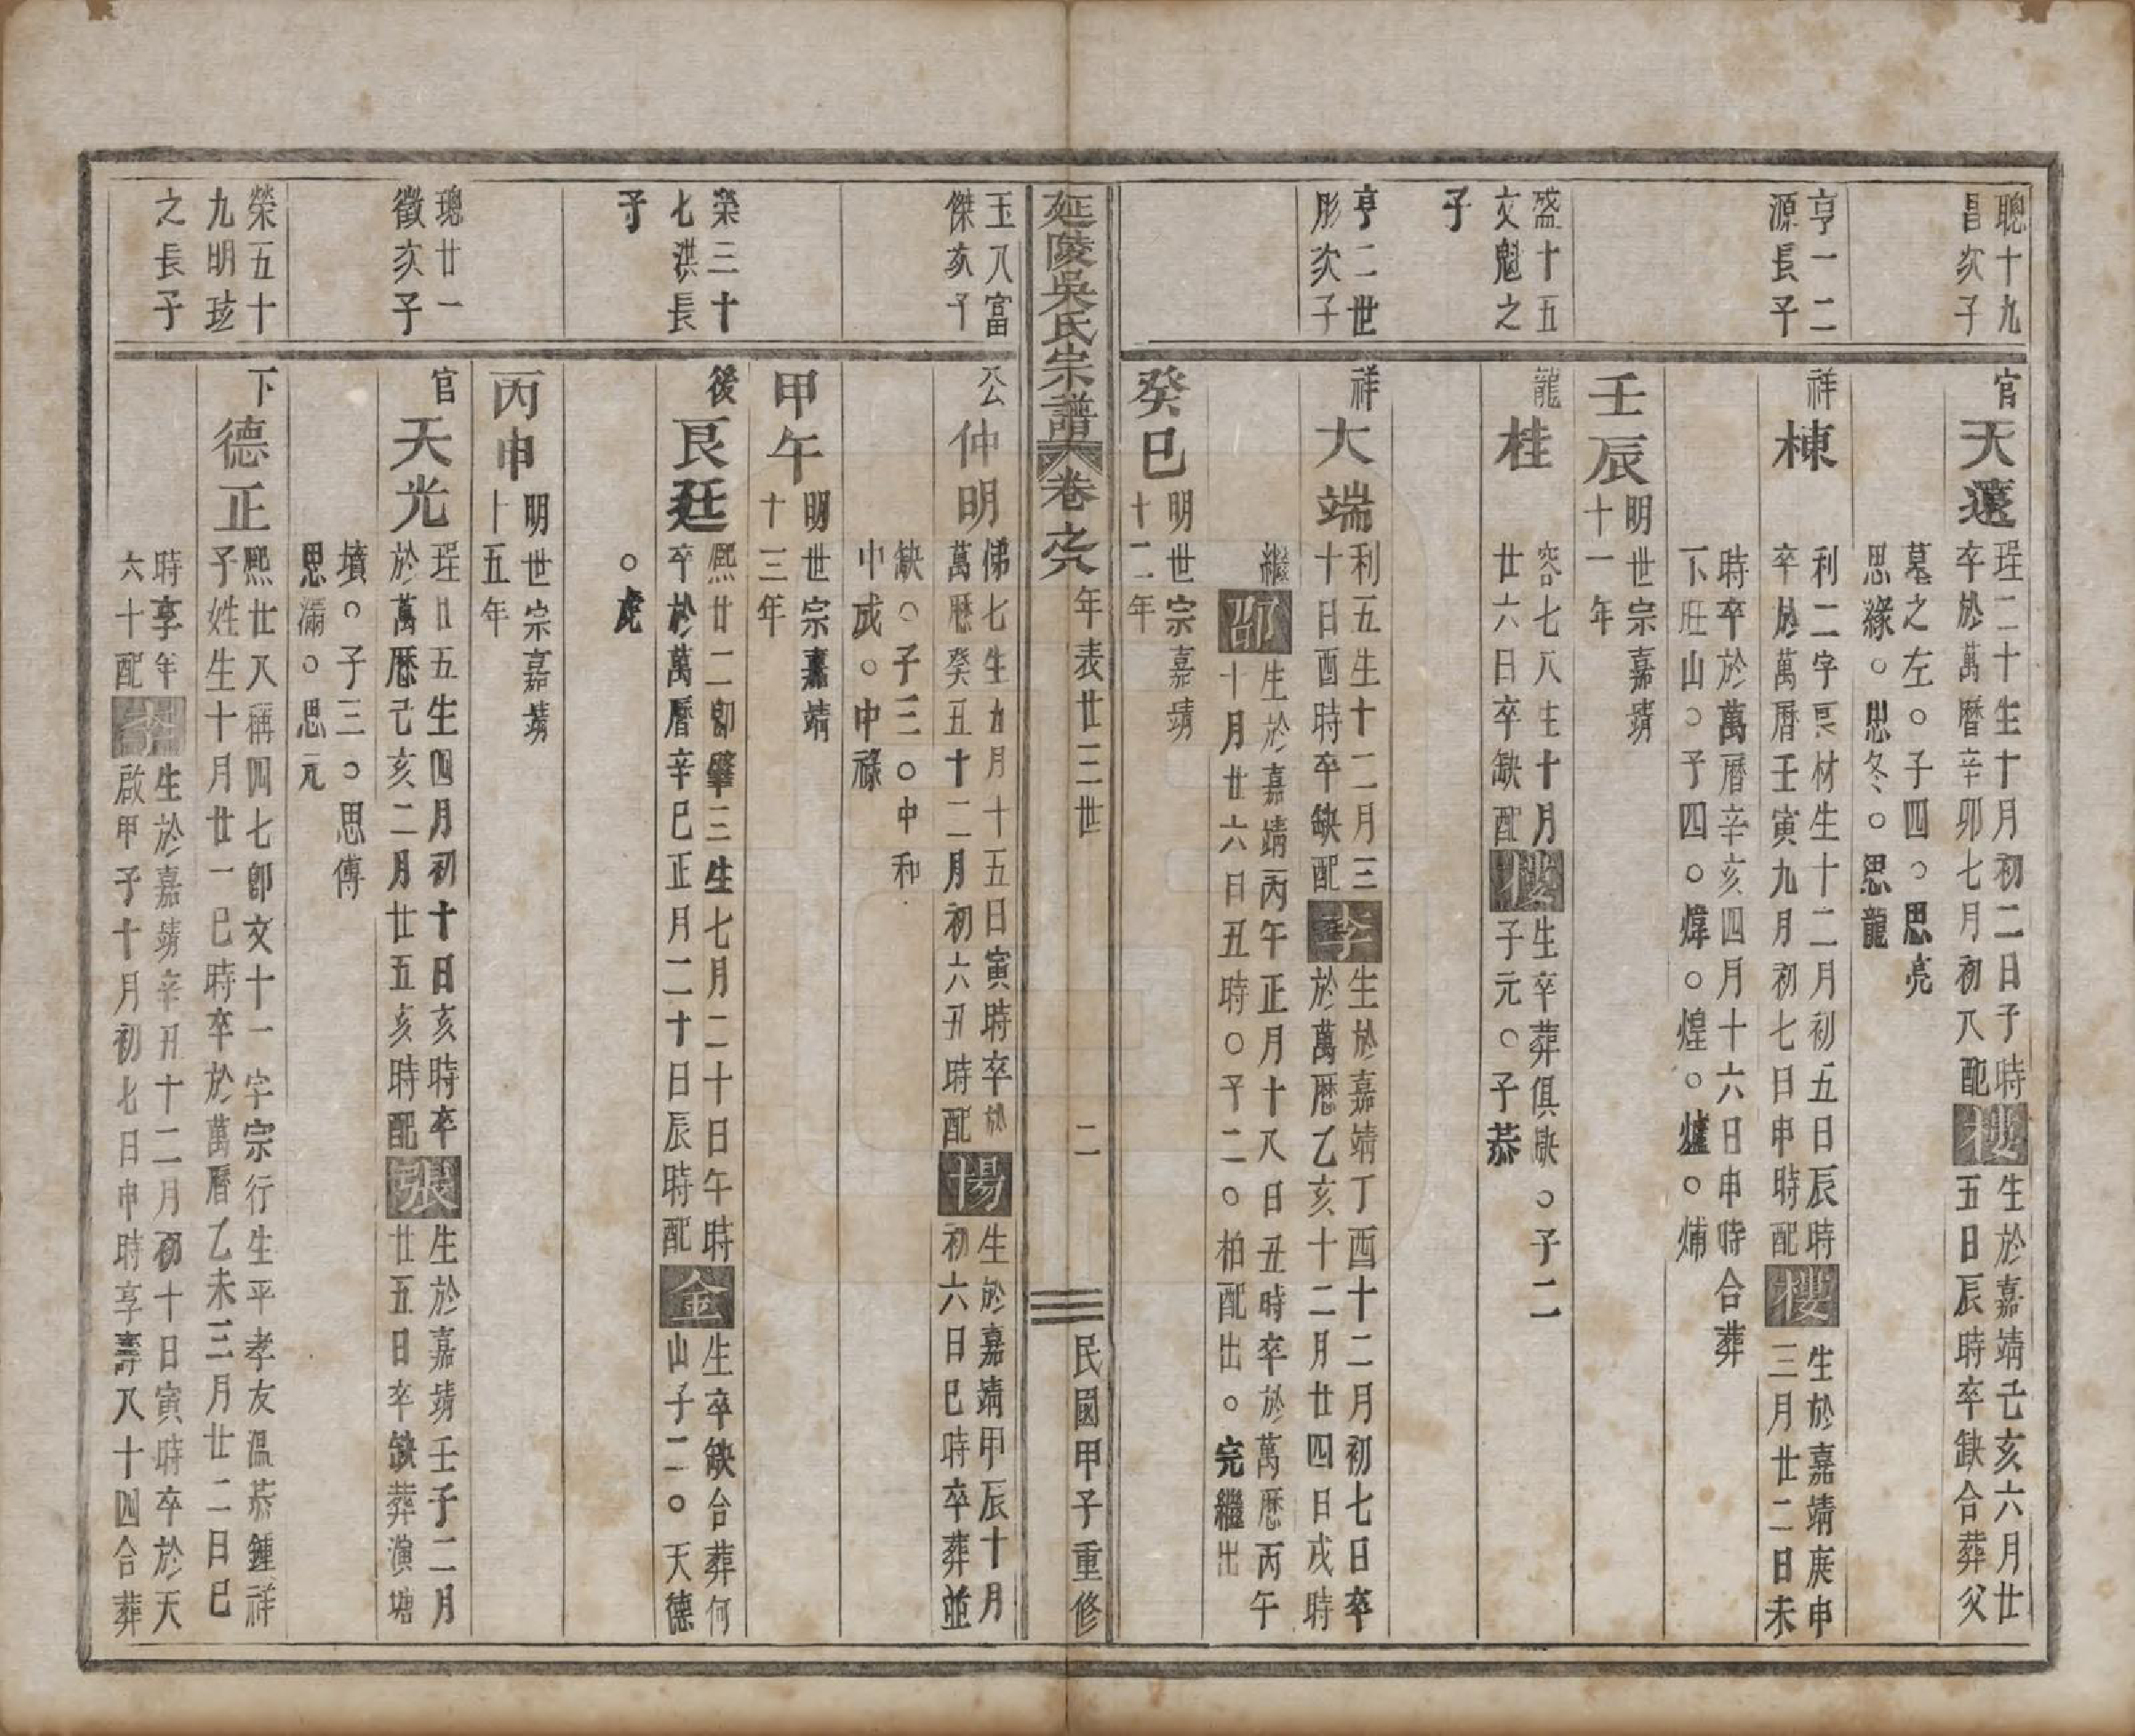 聰十九
昌次子
官
天還
珵二十生十月初二日子時
卒於萬曆辛卯七月初八配
楼
生於嘉靖乙亥六月廿
五日辰時卒缺合葬父
墓之左○子四○思亮
思緣○思冬○思龍
亨一二
源長子
祥
棟
利二字良材生十二月初五日辰時
卒於萬曆壬寅九月初七日申時配
楼
生於嘉靖庚申
三月廿二日未
時卒於萬曆辛亥四月十六日申時合葬
下旺山○子四○煒○煌○爐○㶲
壬辰
明世宗嘉靖
十一年
盛十五
文魁之
子
龍
桂
容七八生十月
廿六日卒缺配
楼
生卒葬俱缺○子二
子元○子恭
亨二世
彤次子
祥
大端
利五生十二月三
十日酉時卒缺配
李
生於嘉靖丁酉十二月初七日卒
於萬曆乙亥十二月廿四日戌時
繼
邵
生於嘉靖丙午正月十八日丑時卒於萬曆丙午
十月廿六日丑時○子二○柏配出○完繼出
癸巳
明世宗嘉靖
十二年
延陵吳氏宗譜
卷之六
年表廿三世
二
民國甲子重修
玉八富
傑次子
公
仲明
俤七生九月十五日寅時卒於
萬曆癸丑十二月初六丑時配
楊
生於嘉靖甲辰十月
初六日巳時卒葬並
缺○子三○中和
中成○中祿
甲午
明世宗嘉靖
十三年
榮三十
七洪長
子
後
良廷
熙廿二卽肇三生七月二十日午時
卒於萬曆辛巳正月二十日辰時配
金
生卒缺合葬何
山子二○天德
○虎
丙申
明世宗嘉靖
十五年
璁廿一
徵次子
官
天光
珵廿五生四月初十日亥時卒
於萬曆己亥二月廿五亥時配
張
生於嘉靖壬子二月
廿五日卒缺葬演塘
墳○子三○思傳
思滿○思元
榮五十
九明玹
之長子
下
德正
熙廿八稱四七卽文十一字宗行生平孝友溫恭鍾祥
子姓生十月廿一巳時卒於萬曆乙未三月廿二日巳
時享年
六十配
李
生於嘉靖辛丑十二月初十日寅時卒於天
啟甲子十月初七日申時享壽八十四合葬